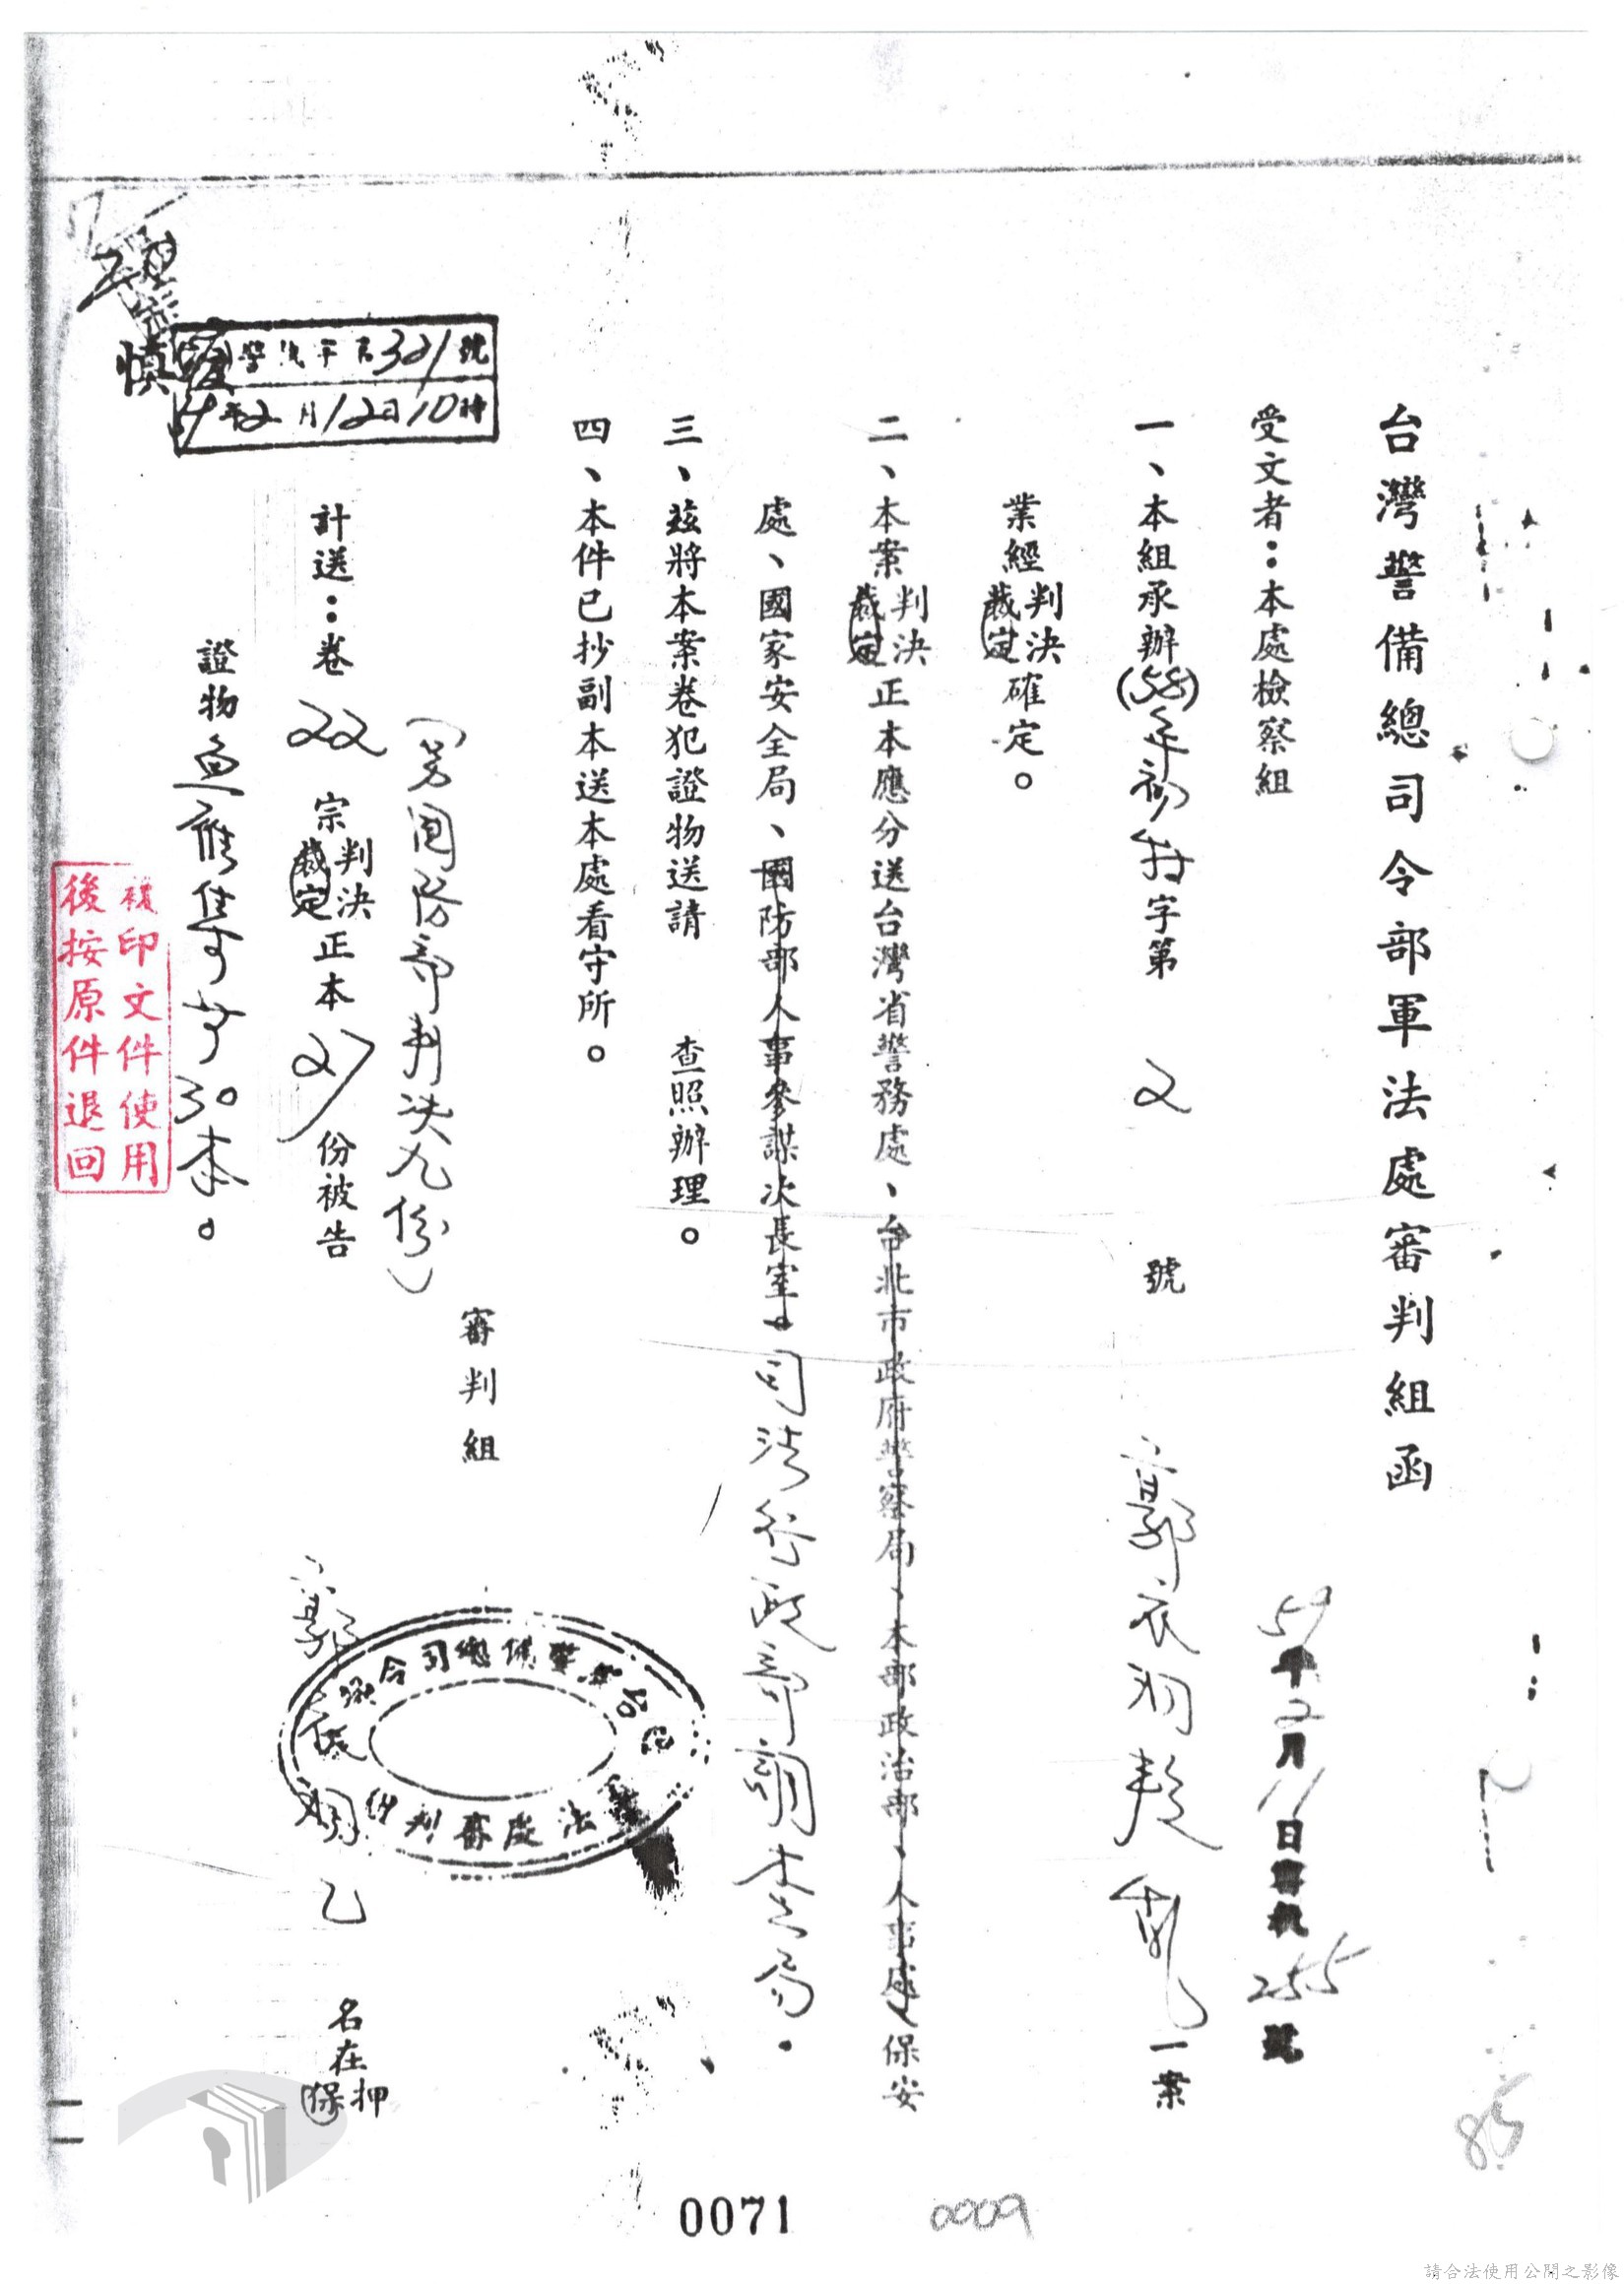 台灣警備總司令部軍法處審判組函
59年2月11日審機255號
受文者：本處檢察組
一、本組承辦(58)年初特字第2號郭衣洞叛亂一案
業經判決裁定確定。
二、本案判決裁定正本應分送台灣省警務處、台北市政府警察局、本部政治部、人事處、保安
處、國家安全局、國防部人事參謀次長室。司法行政部調查局。
三、茲將本案卷犯證物送請 查照辦理。
四、本件已抄副本送本處看守所。
審判組
(另國防部判決九份)
計送：卷22宗判決裁定正本21份被告郭衣洞乙名在押保
證物 30本。
321號
59年2月12日10時
複印文件使用
後按原件退回
0071
0009
85
請合法使用公開之影像